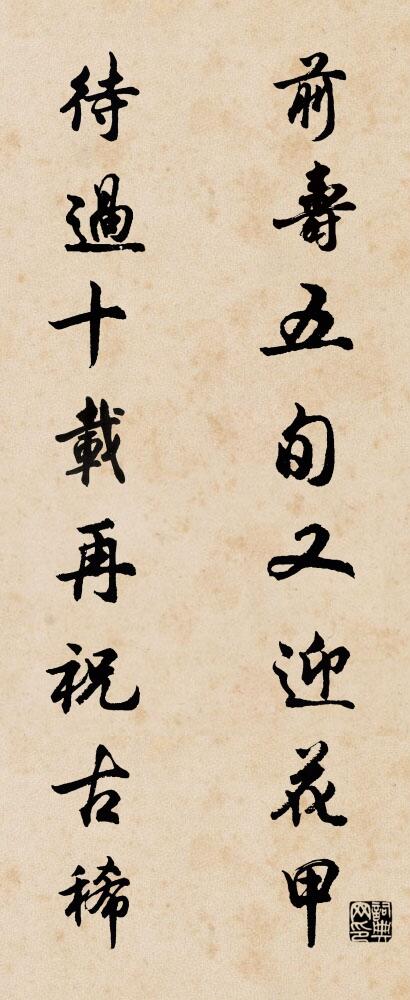 前壽五旬又迎花甲
待過十載再祝古稀
詞典網印